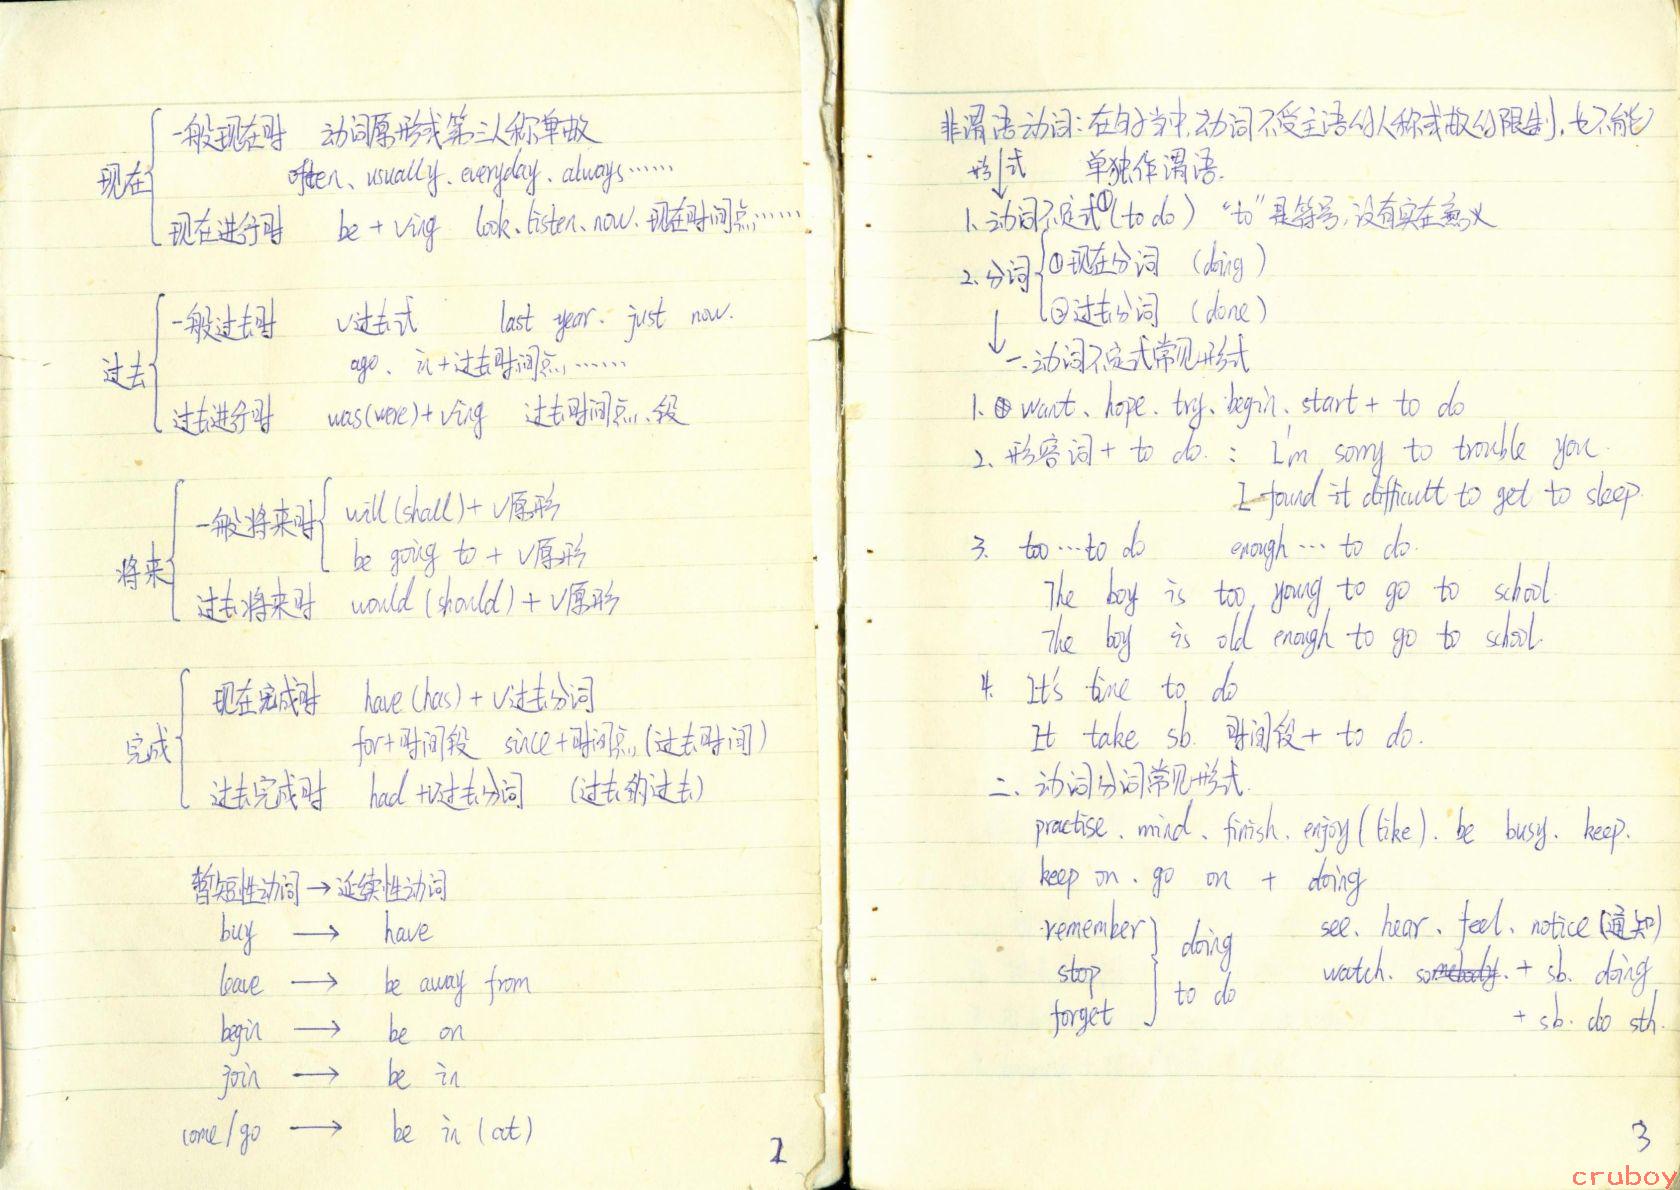 现在
一般现在时 动词原形或第三人称单数
often、usually、everyday、always……
现在进行时 be + ving look、listen、now、现在时间点……
过去
一般过去时 v过去式 last year. just now.
ago、in+过去时间点……
过去进行时 was(were)+ving 过去时间点、段
将来
一般将来时
will(shall)+v原形
be going to + v原形
过去将来时 would(should)+v原形
完成
现在完成时 have(has)+v过去分词
for+时间段 since+时间点(过去时间)
过去完成时 had+v过去分词 (过去的过去)
暂短性动词→延续性动词
buy → have
leave → be away from
begin → be on
join → be in
come/go → be in (at)
2
非谓语动词:在句子当中,动词不受主语的人称或数的限制,也不能
形式 单独作谓语.
1、动词不定式①(to do) "to"是符号,没有实在意义
2、分词
①现在分词 (doing)
②过去分词 (done)
一.动词不定式常见形式
1. want、hope、try、begin、start + to do
2、形容词+ to do.: I'm sorry to trouble you.
I found it difficutt to get to sleep.
3. too…to do enough… to do.
The boy is too young to go to school.
The boy is old enough to go to school.
4. It's time to do
It take sb. 时间段+ to do.
二、动词分词常见形式.
practise、mind、finish、enjoy(like)、be busy、keep.
keep on、go on + doing
remember
stop
forget
doing
to do
see、hear、feel、notice(通知)
watch. somebody. + sb. doing
+ sb. do sth.
3
cruboy